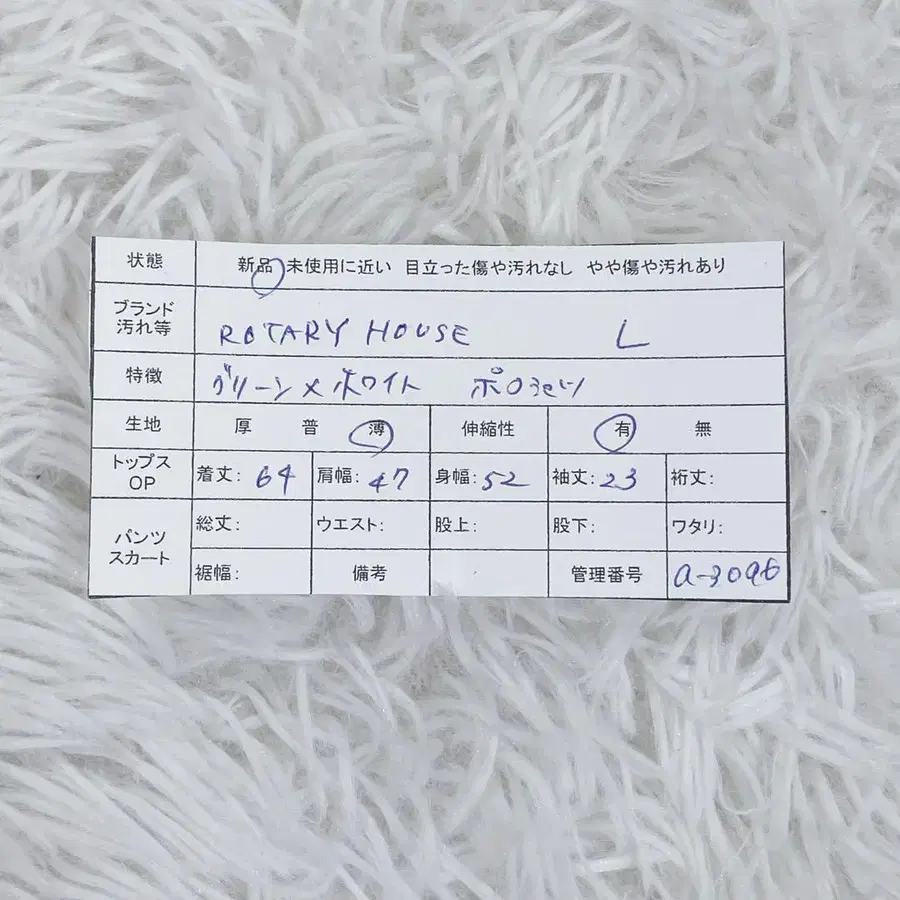 状態 新品 未使用に近い 目立った傷や汚れなし やや傷や汚れあり
ブランド
汚れ等 ROTARY HOUSE L
特徴 グリーン×ホワイト ポロシャツ
生地 厚 普 薄 伸縮性 有 無
トップス
OP 着丈: 64 肩幅: 47 身幅: 52 袖丈: 23 裄丈:
パンツ
スカート 総丈: ウエスト: 股上: 股下: ワタリ:
裾幅: 備考 管理番号 a-3096